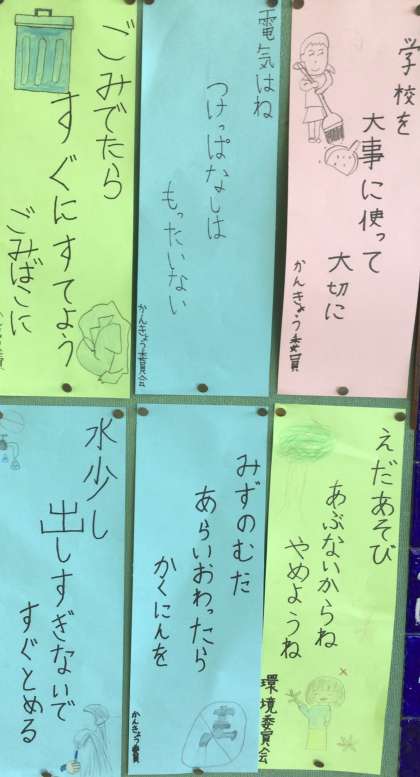 学校を
大事に使って
大切に
かんきょう委員
電気はね
つけっぱなしは
もったいない
かんきょう委員会
ごみでたら
すぐにすてよう
ごみばこに
えだあそび
あぶないからね
やめようね
環境委員会
みずのむた
あらいおわったら
かくにんを
かんきょう委員
水少し
出しすぎないで
すぐとめる